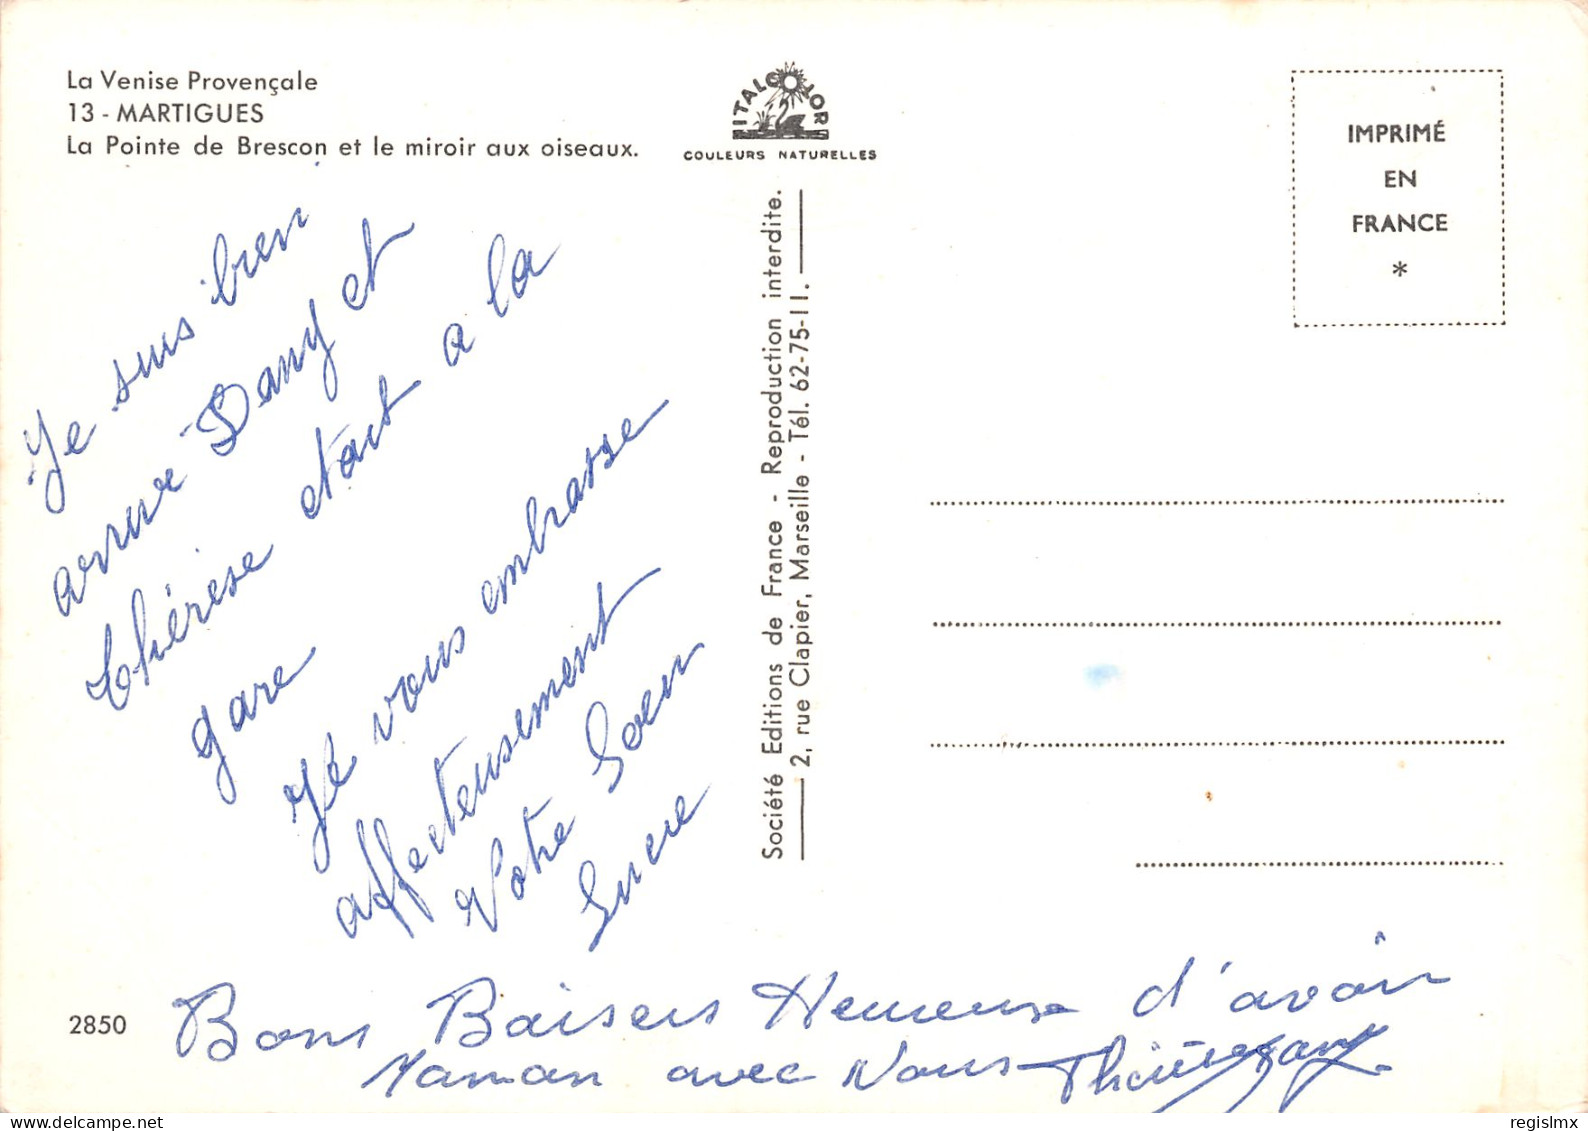 La Venise Provençale
13 - MARTIGUES
La Pointe de Brescon et le miroir aux oiseaux.
ITALCOLOR
COULEURS NATURELLES
IMPRIMÉ
EN
FRANCE
*
Je suis bien
arrivé Dany et
thérèse etait a la
gare
Je vous embrasse
affecteusement
Votre Soeur
Société Editions de France - Reproduction interdite.
2, rue Clapier, Marseille - Tél. 62-75-11.
2850
Bons Baisers Heureux d'avoir
Maman avec Nous Thérèse Dany
regislmx